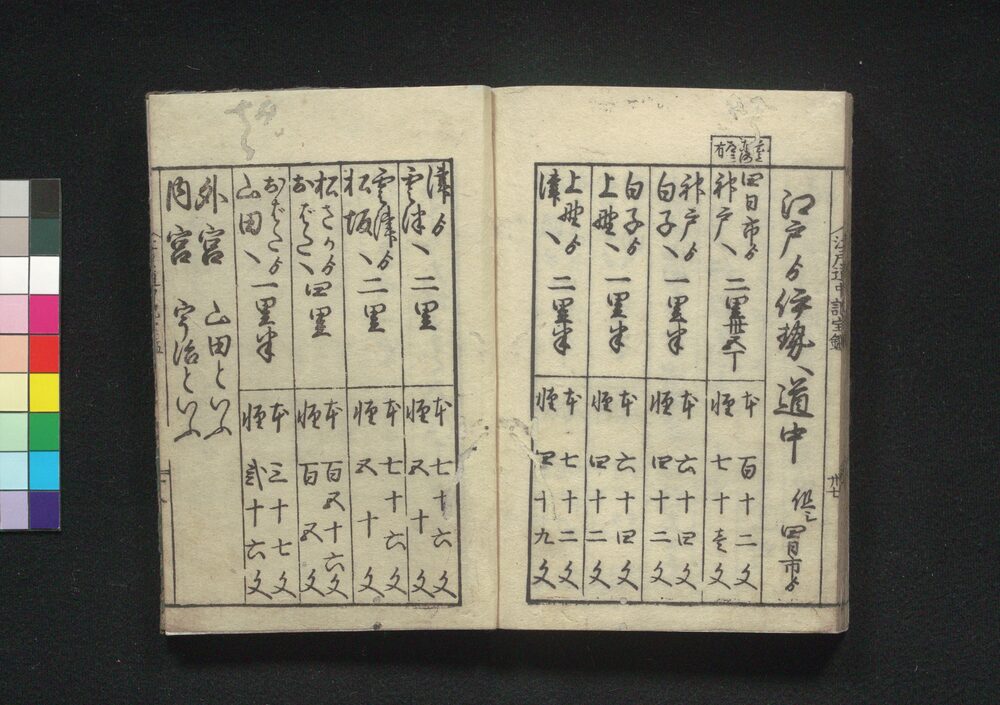 江戸ゟ伊勢へ道中 但シ四日市ゟ
四日市ゟ
神戸へ 二里卅五丁
本 百十二文
軽 七十壱文
神戸ゟ
白子へ 一里半
本 六十四文
軽 四十二文
白子ゟ
上野へ 一里半
本 六十四文
軽 四十二文
上野ゟ
津へ 二里半
本 七十二文
軽 四十九文
津ゟ
雲津へ 二里
本 七十六文
軽 五十文
雲津ゟ
松坂へ 二里
本 七十六文
軽 五十文
松さかゟ
おばたへ 四里
本 百五十六文
軽 百五文
おばたゟ
山田へ 一里半
本 三十七文
軽 弐十六文
外宮 山田といふ
内宮 宇治といふ
江戸道中記宝鑑
卅七